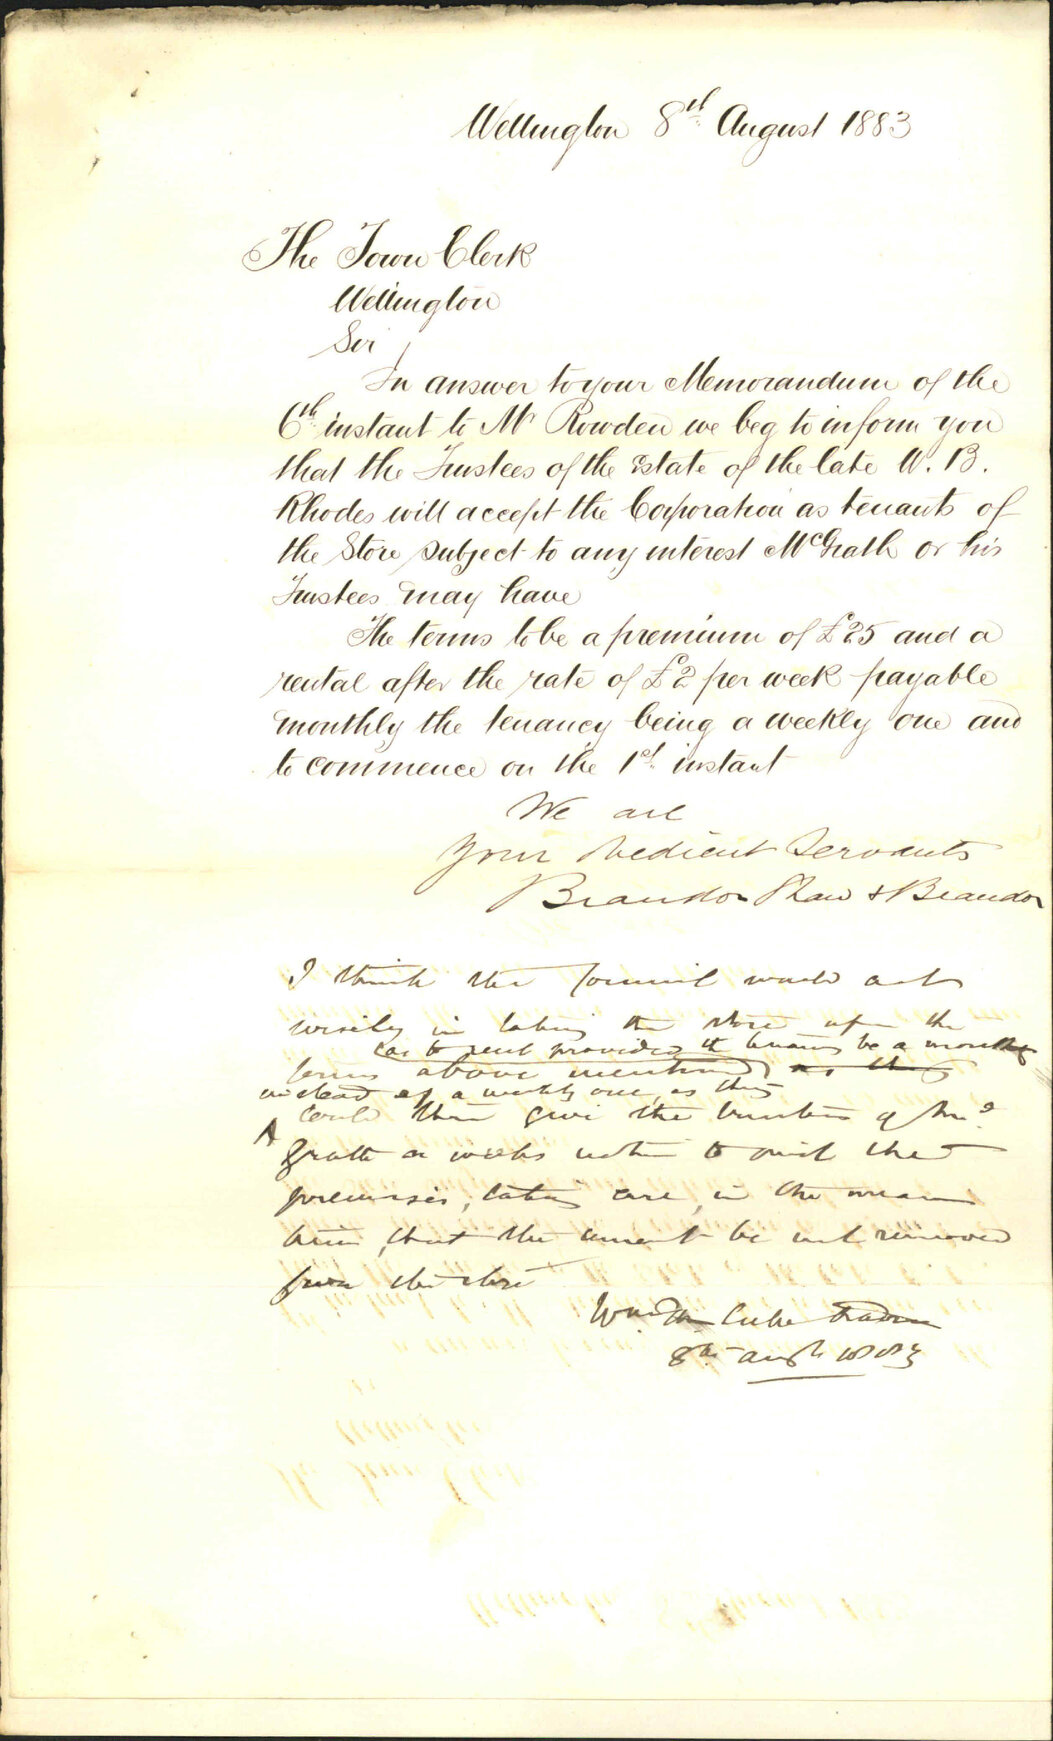 Wellington 8th August 1883
The Town Clerk
Wellington
Sir
In answer to your Memorandum of the
6th instant to Mr Rowden we beg to inform you
that the Trustees of the Estate of the late W. B.
Rhodes will accept the Corporation as tenants of
the Store subject to any interest McGrath or his
Trustees may have
The terms to be a premium of £25 and a
rental after the rate of £2 per week payable
monthly the tenancy being a weekly one and
to commence on the 1st instant
We are
Your obedient Servants
Brandon Shaw & Brandon
I think the Council would act
wisely in taking the store upon the
as to rent provided the tenancy be a monthly
terms above mentioned as they
instead of a weekly one, as they
could then give the trustees of Mc
Grath a weeks notice to quit the
premises, taking care, in the mean
time, that the cement be not removed
from the store
8th Augt 1883